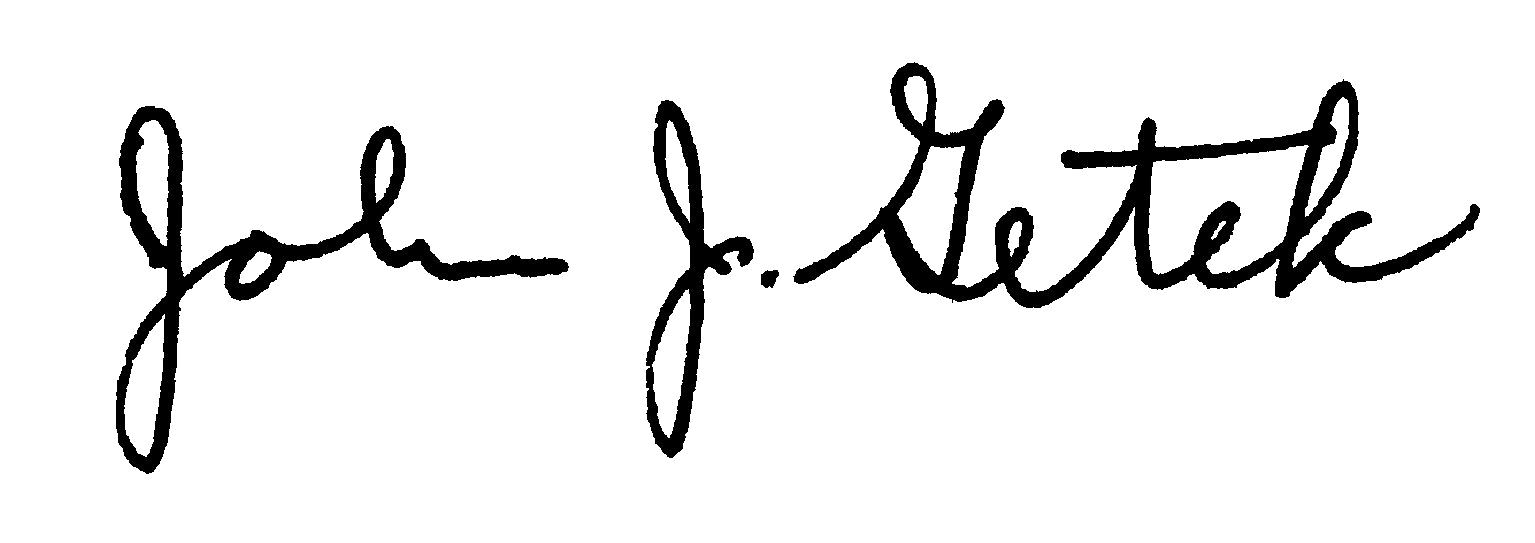 John J. Getek